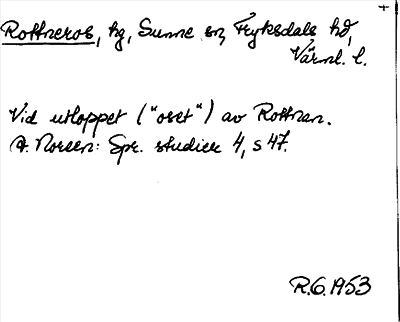 Rottneros, hg, Sunne sn, Fryksdals hd,
Värml. l.
Vid utloppet ("oset") av Rottnan.
A. Noreen: Spr. studier 4, s 47.
R.G. 1953